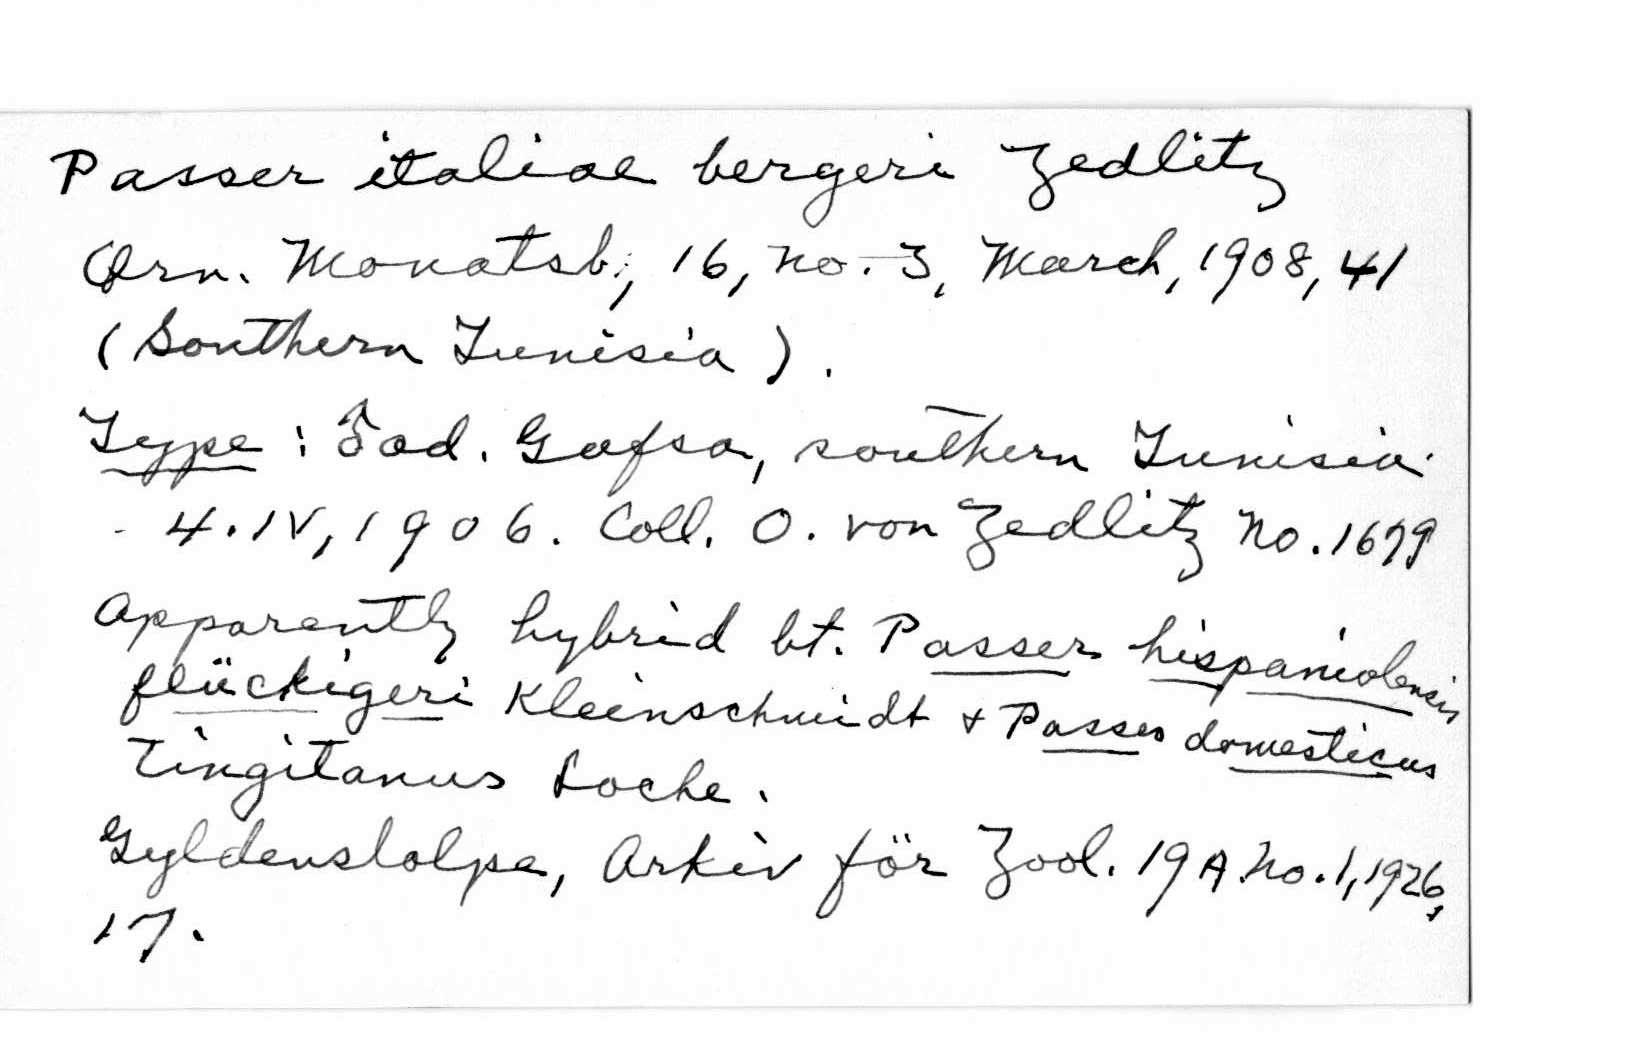 Passer italiae bergeri Zedlitz
Orn. Monatsb., 16, no. 3, March, 1908, 41
(Southern Tunisia).
Type: ♂ ad. Gafsa, southern Tunisia
- 4.IV, 1906. Coll. O. von Zedlitz No. 1679
Apparently hybrid bt. Passer hispaniolensis
flückigeri Kleinschmidt & Passer domesticus
tingitanus Loche.
Gyldenstolpe, Arkiv för Zool. 19A. No. 1, 1926,
17.